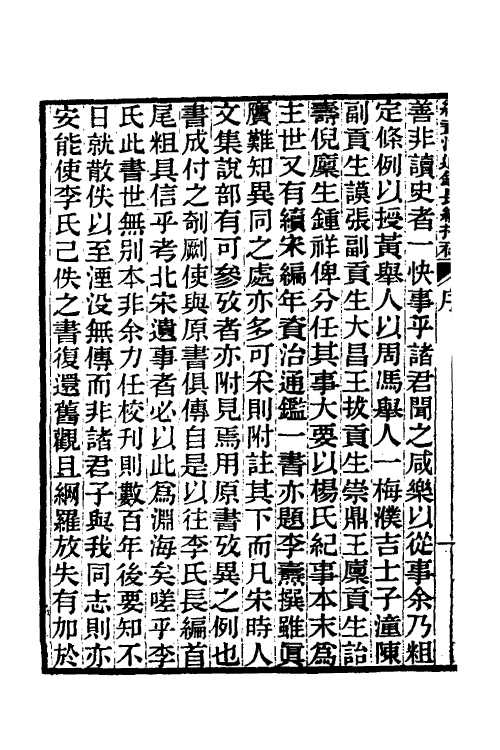 善非讀史者一快事乎諸君聞之咸樂以從事余乃粗
定條例以授黃舉人以周馮舉人一梅濮吉士子潼陳
副貢生謨張副貢生大昌王拔貢生崇鼎王廩貢生詒
壽倪廩生鍾祥俾分任其事大要以楊氏紀事本末爲
主世又有續宋編年資治通鑑一書亦題李燾撰雖眞
贗難知異同之處亦多可采則附註其下而凡宋時人
文集說部有可參攷者亦附見焉用原書攷異之例也
書成付之剞劂使與原書俱傳自是以往李氏長編首
尾粗具信乎考北宋遺事者必以此爲淵海矣嗟乎李
氏此書世無別本非余力任校刊則數百年後要知不
日就散佚以至湮没無傳而非諸君子與我同志則亦
安能使李氏已佚之書復還舊觀且網羅放失有加於
序
一